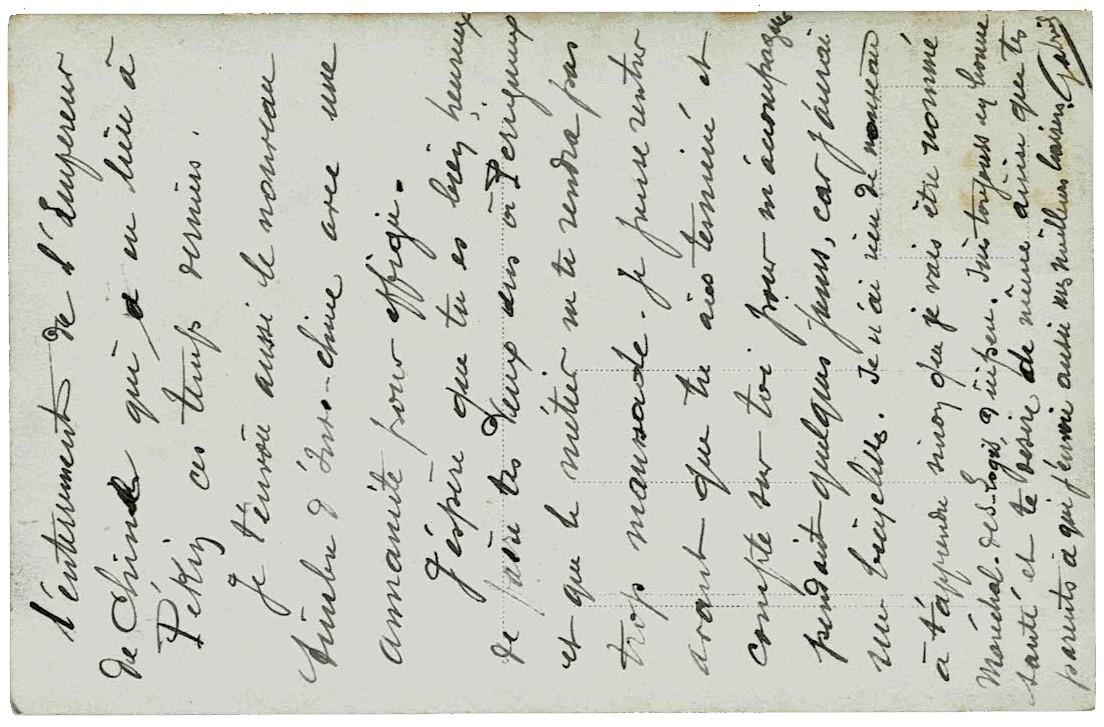 l'enterrement de l'Empereur
de Chine qui a eu lieu à
Pékin ces temps derniers.
Je t'envoie aussi le nouveau
timbre d'Indo-chine avec une
annamite pour effigie.
J'espère que tu es bien heureux
de faire tes deux ans à Périgueux
et que le métier ne te rendra pas
trop maussade. Je pense rentrer
avant que tu aies terminé et
compte sur toi pour m'accompagner
pendant quelques jours, car j'aurai
une bicyclette. Je n'ai rien de nouveau
à t'apprendre sinon que je vais être nommé
Maréchal-des-Logis sous peu. Suis toujours en bonne
santé et te désire de même ainsi qu'à tes
parents à qui j'envoie aussi mes meilleurs baisers. Gabriel